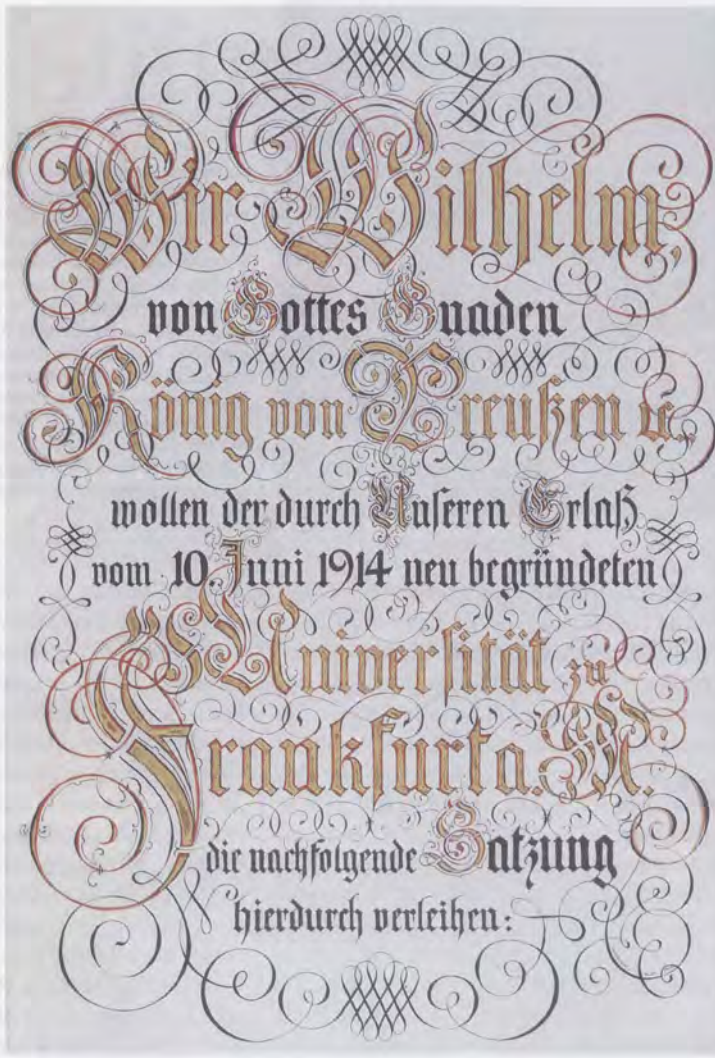 Wir Wilhelm,
von Gottes Gnaden
König von Preußen ꝛc.,
wollen der durch Unseren Erlaß
vom 10. Juni 1914 neu begründeten
Universität zu
Frankfurt a. M.
die nachfolgende Satzung
hierdurch verleihen: